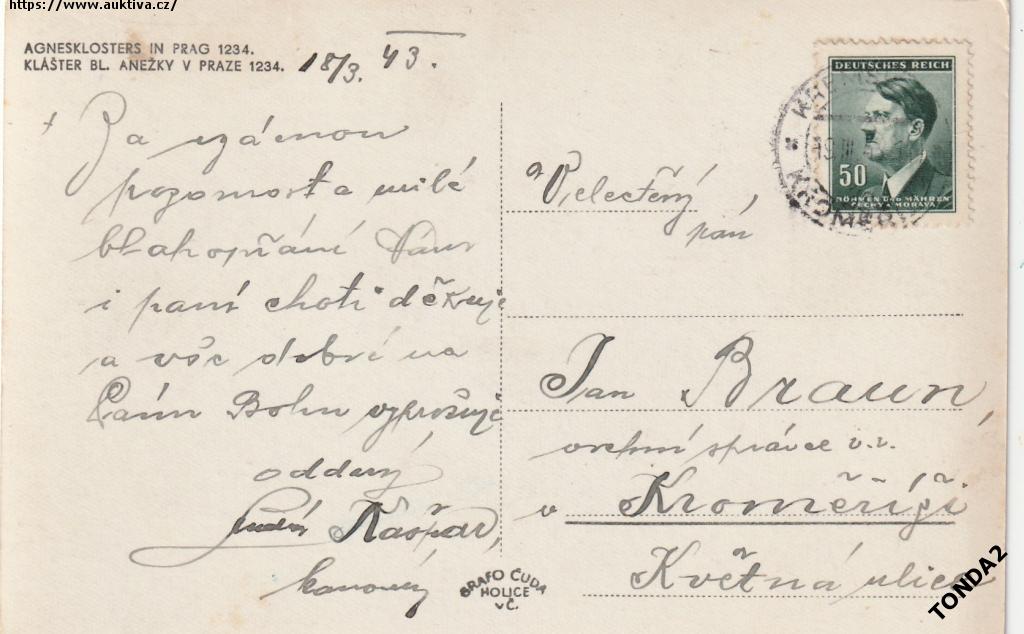 https://www.auktiva.cz/
AGNESKLOSTERS IN PRAG 1234.
KLÁŠTER BL. ANEŽKY V PRAZE 1234.
18/3. 43.
Za vzácnou
pozornost a milé
blahopřání Vám
i paní choti děkuje
a vše dobré na
Pánu Bohu vyprošuje
oddaný
Kašpar,
kanovník
GRAFO ČUDA
HOLICE
v Č.
DEUTSCHES REICH
50
BÖHMEN UND MÄHREN
ČECHY A MORAVA
Velectěný
pán
Jan Braun,
vrchní správce v.v.
v Kroměříži
Květná ulice
TONDA2